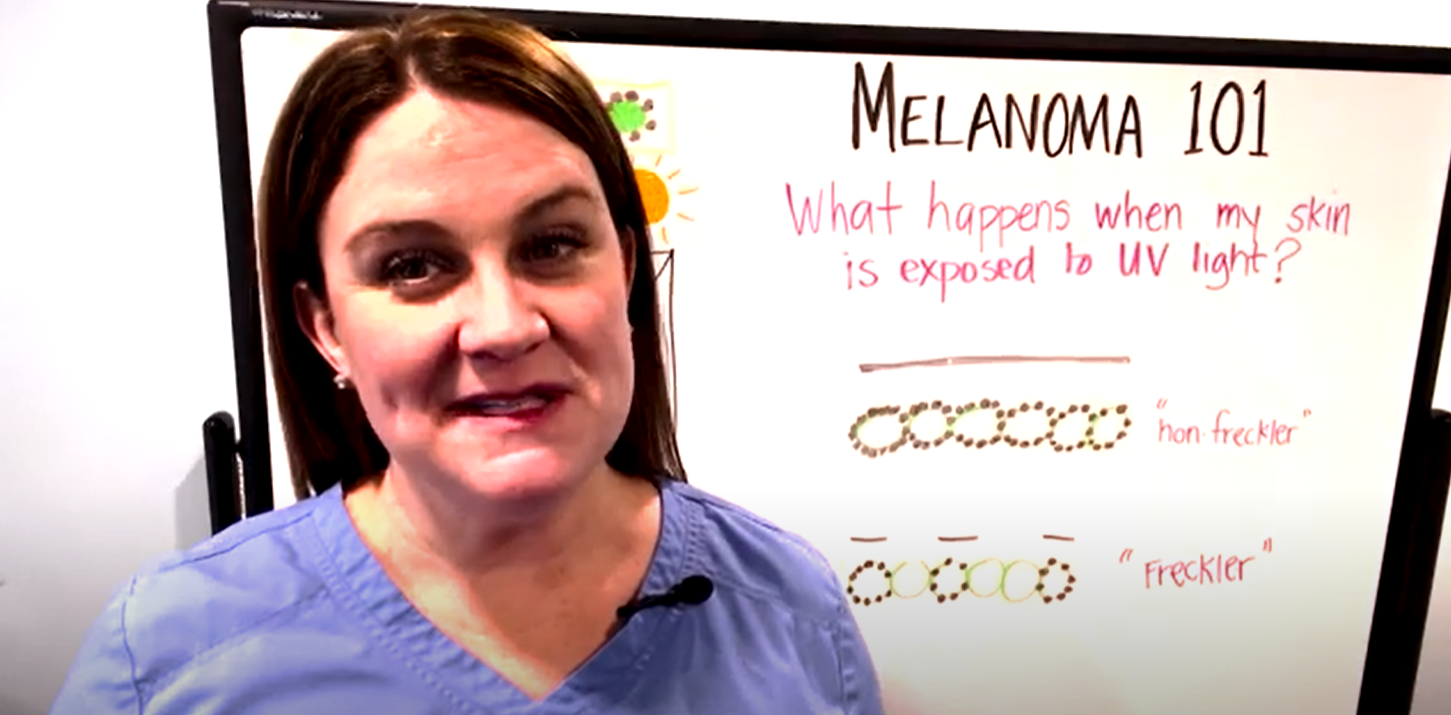 MELANOMA 101
What happens when my skin
is exposed to UV light?
"non-freckler"
"Freckler"